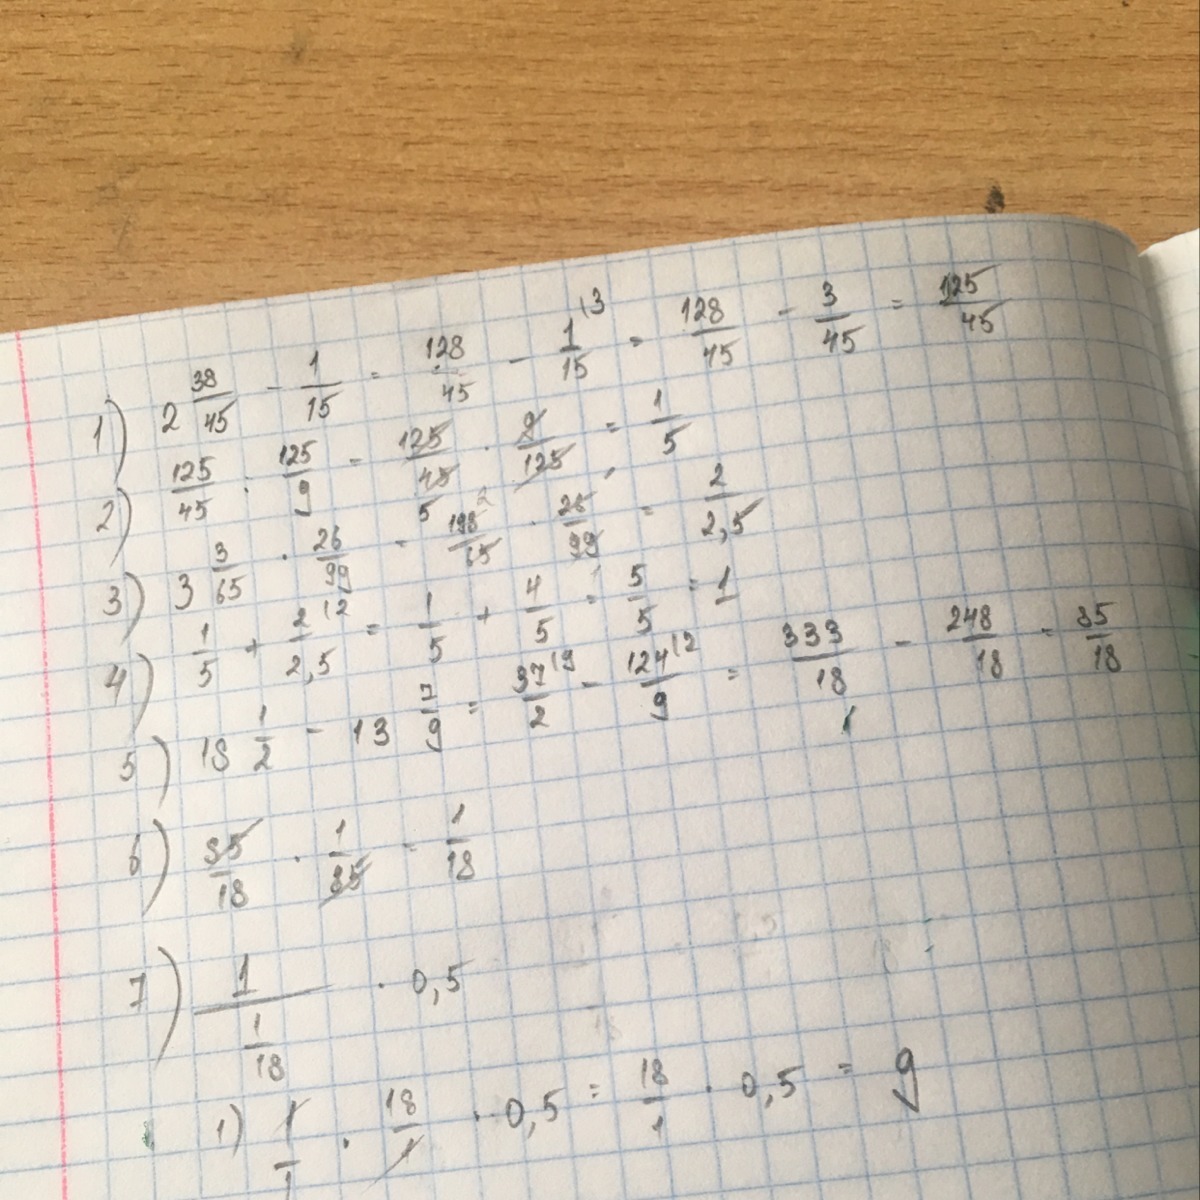 1) 2 38/45 - 1/15 = 128/45 - 1/15 ^(3 = 128/45 - 3/45 = 125/45
2) 125/45 : 125/9 = 125/45 · 9/125 = 1/5
5
3) 3 3/65 · 26/99 = 198/65 ^2 · 26/99 = 2/2,5
4) 1/5 + 2/2,5 ^(2 = 1/5 + 4/5 = 5/5 = 1
5) 18 1/2 - 13 7/9 = 37/2 ^(9 - 124/9 ^(2 = 333/18 - 248/18 = 85/18
6) 85/18 · 1/85 = 1/18
7) 1/(1/18) · 0,5
1) 1/1 · 18/1 · 0,5 = 18/1 · 0,5 = 9